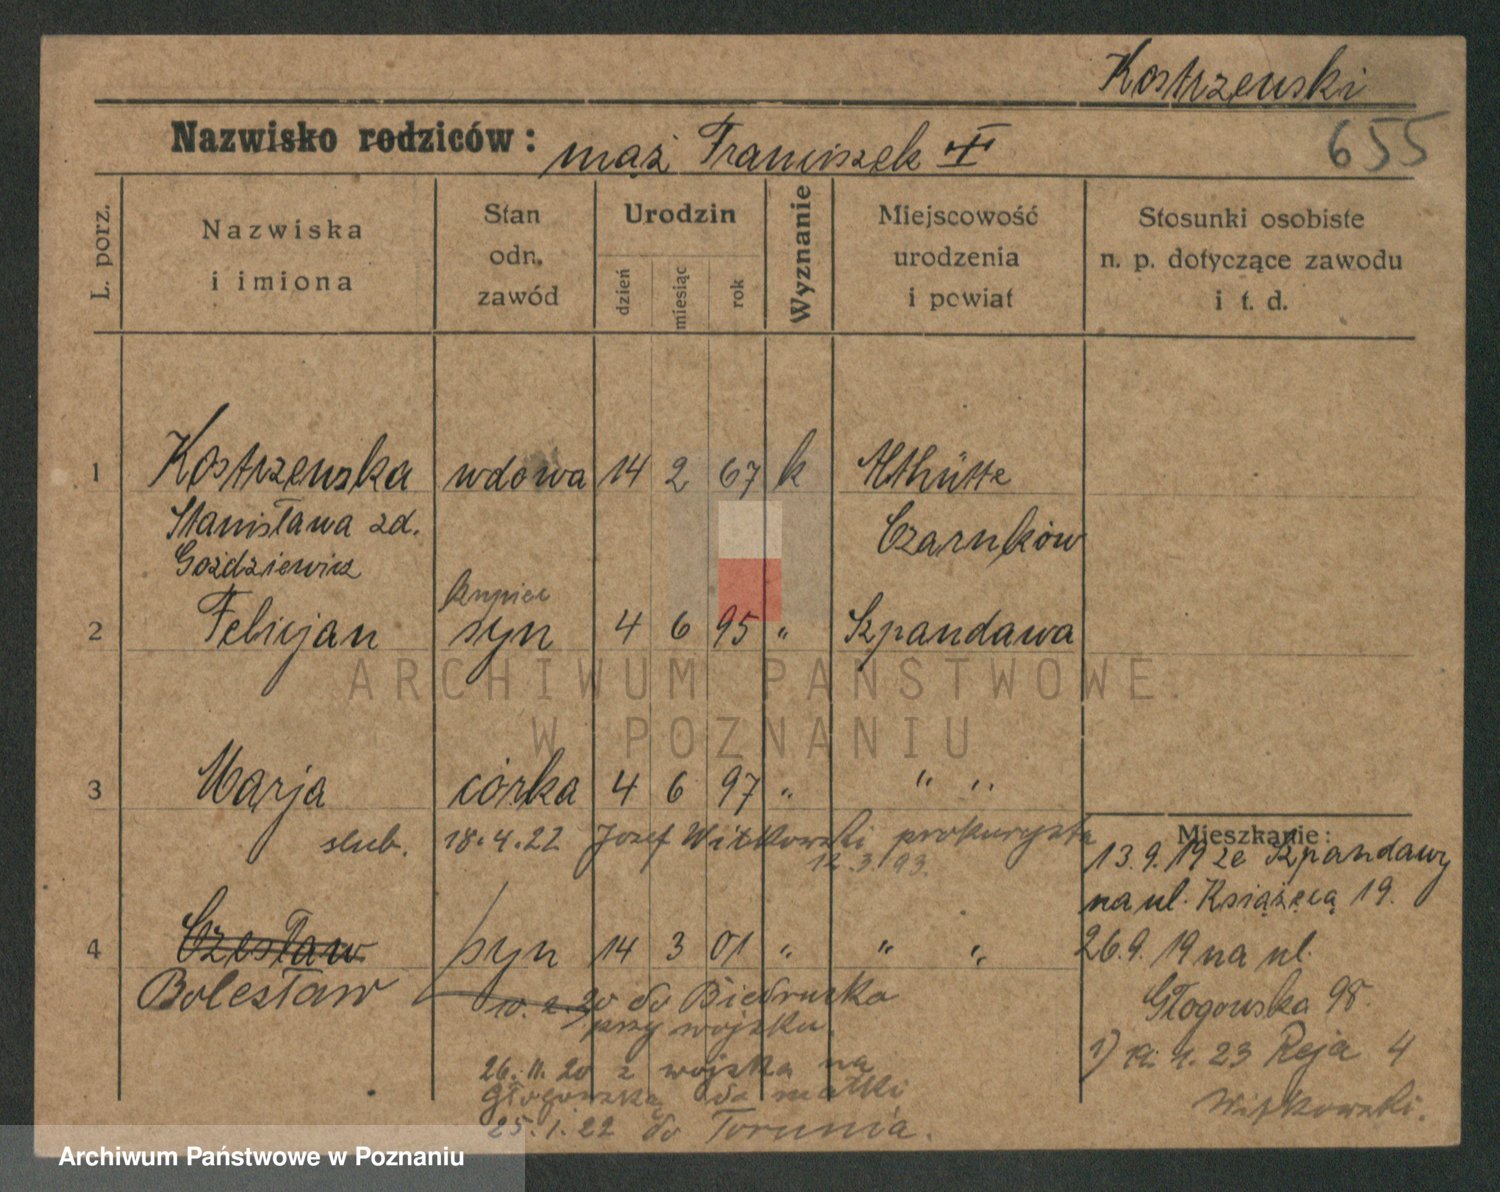 Kostrzewski
Nazwisko rodziców: mąż Franciszek
655
L. porz.
Nazwiska
i imiona
Stan
odn.
zawód
Urodzin
dzień
miesiąc
rok
Wyznanie
Miejscowość
urodzenia
i powiat
Stosunki osobiste
n. p. dotyczące zawodu
i t. d.
1 Kostrzewska wdowa 14 2 67 k Althütte
Stanisława zd. Czarnków
Goździewicz
kupiec
2 Felicjan syn 4 6 95 " Szpandawa
ARCHIWUM PAŃSTWOWE
W POZNANIU
3 Marja córka 4 6 97 " " "
ślub. 18.4.22 Jozef Witkowski prokurysta
12.3.93.
Mieszkanie:
13.9.19 ze Szpandawy
na ul. Książęcą 19.
4 Czesław syn 14 3 01 " " "
26.9.19 na ul.
Bolesław
20 do Biedruska
Głogowska 98.
przy wojsku.
1) 23 Reja 4
26.11.20 z wojska na
Głogowską do matki
Witkowski.
25.1.22 do Torunia.
Archiwum Państwowe w Poznaniu